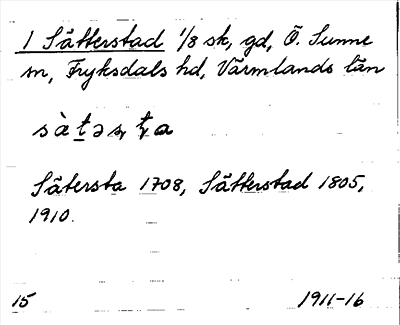 1 Sätterstad 1/8 sk, gd, Ö. Sunne
sn, Fryksdals hd, Värmlands län
Sätersta 1708, Sätterstad 1805,
1910.
15 1911-16